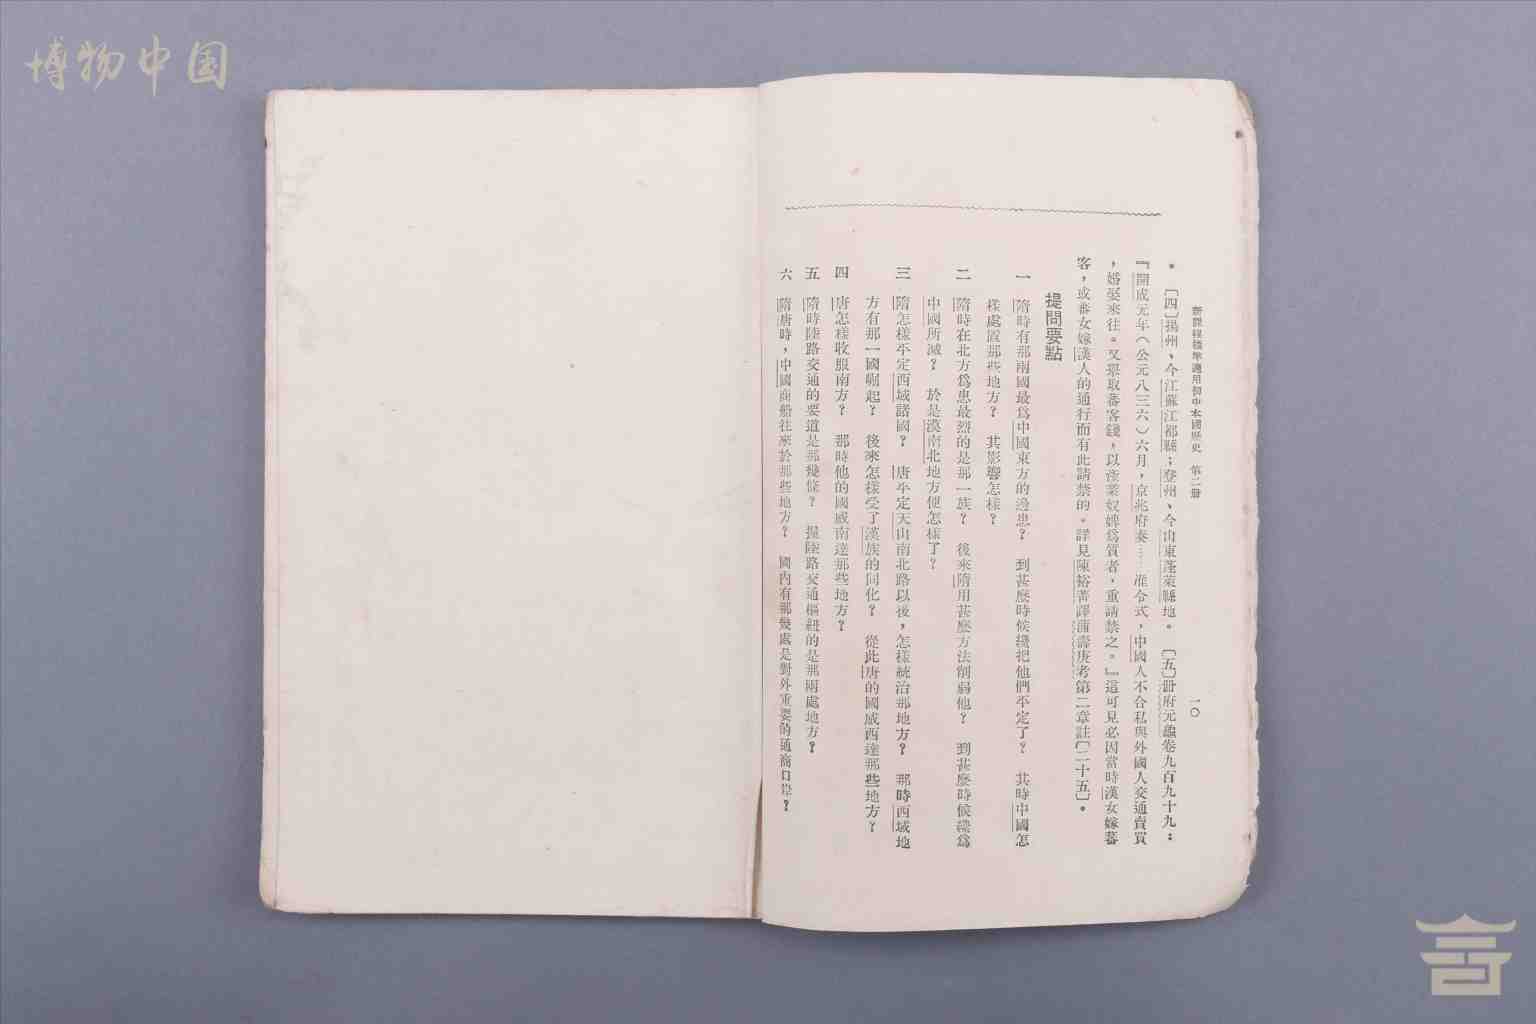 博物中国
新課程標準適用初中本國歷史　第二册
一〇
。〔四〕揚州、今江蘇江都縣；登州、今山東蓬萊縣地。〔五〕册府元龜卷九百九十九：
『開成元年（公元八三六）六月，京兆府奏……准令式，中國人不合私與外國人交通賣買
，婚娶來往。又舉取蕃客錢，以產業奴婢爲質者，重請禁之。』這可見必因當時漢女嫁蕃
客，或蕃女嫁漢人的通行而有此請禁的。詳見陳裕菁譯蒲壽庚考第二章註〔二十五〕。
提問要點
一　隋時有那兩國最爲中國東方的邊患？　到甚麽時候纔把他們平定了？　其時中國怎
樣處置那些地方？　其影響怎樣？
二　隋時在北方爲患最烈的是那一族？　後來隋用甚麽方法削弱他？　到甚麽時候纔爲
中國所滅？　於是漠南北地方便怎樣了？
三　隋怎樣平定西域諸國？　唐平定天山南北路以後，怎樣統治那地方？　那時西域地
方有那一國崛起？　後來怎樣受了漢族的同化？　從此唐的國威西達那些地方？
四　唐怎樣收服南方？　那時他的國威南達那些地方？
五　隋時陸路交通的要道是那幾條？　握陸路交通樞紐的是那兩處地方？
六　隋唐時，中國商船往來於那些地方？　國內有那幾處是對外重要的通商口岸？